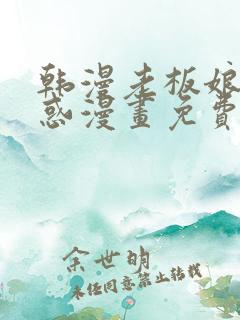 韩漫老板娘
惑漫畫免費
余世明
未经同意禁止转载